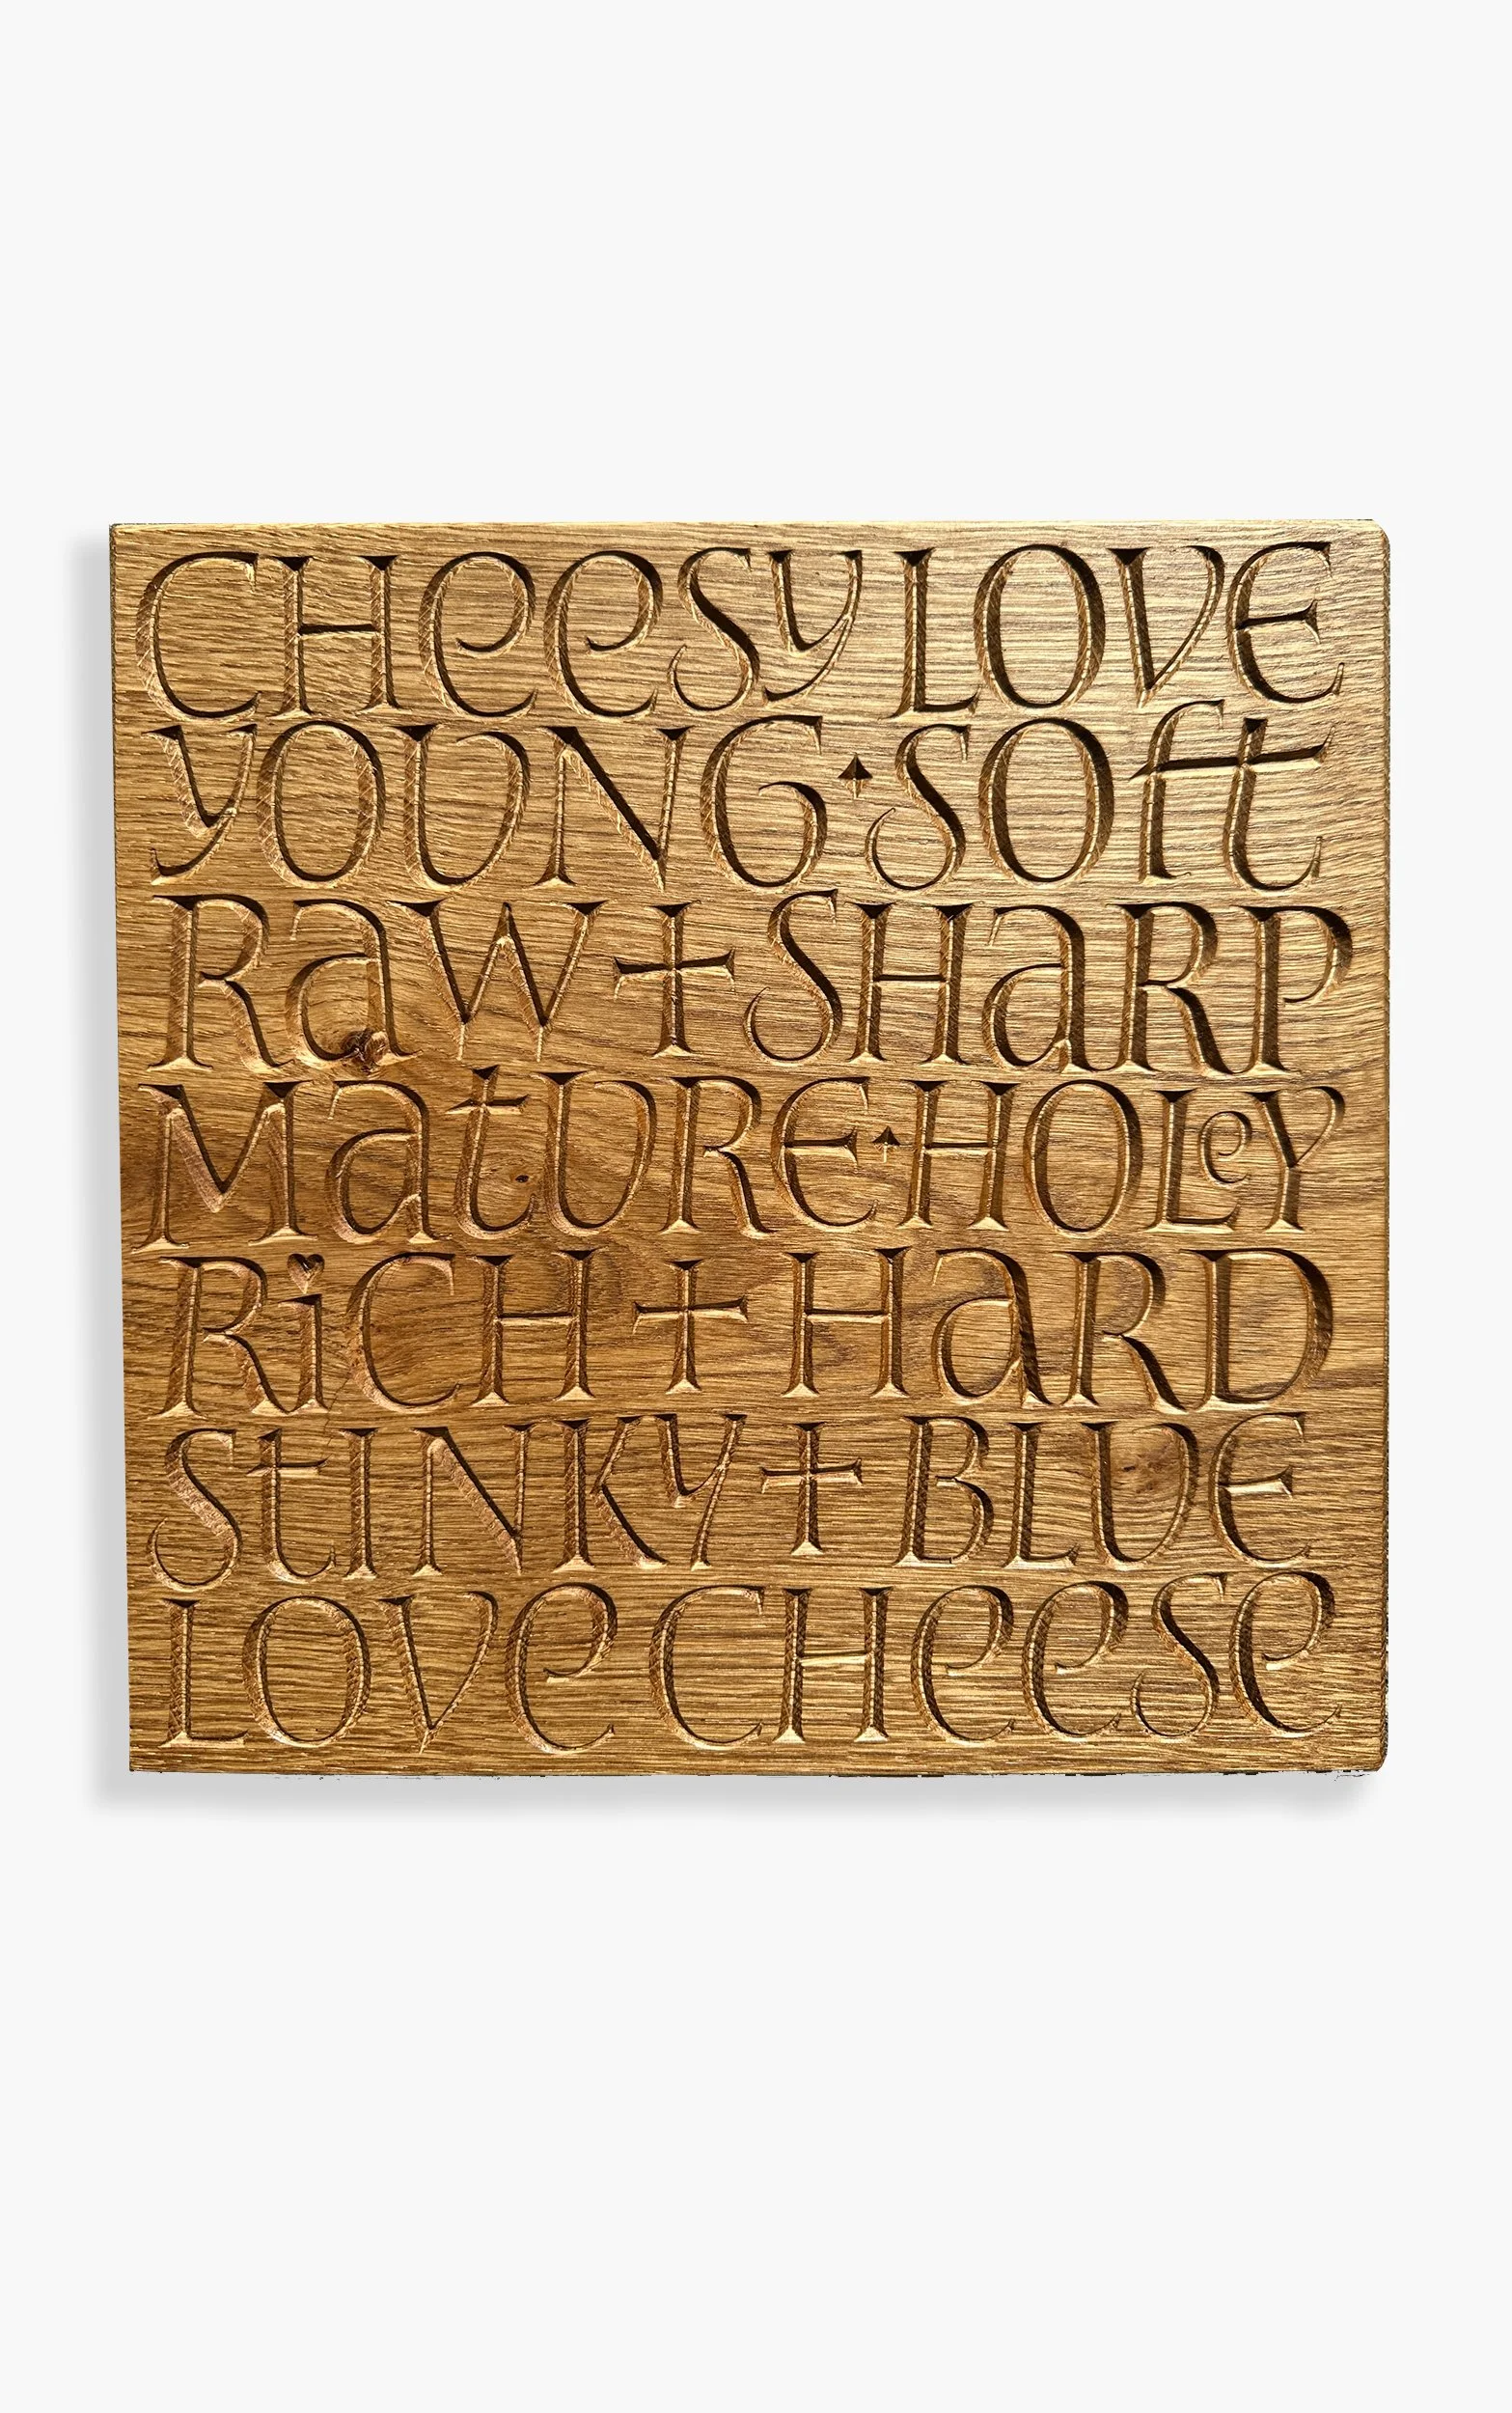 CHeesy LOVE
yOUNG · SOft
RaW + SHaRP
MatURE · HOLeY
RiCH + HaRD
StINKy + BLUE
LOVe CHeese